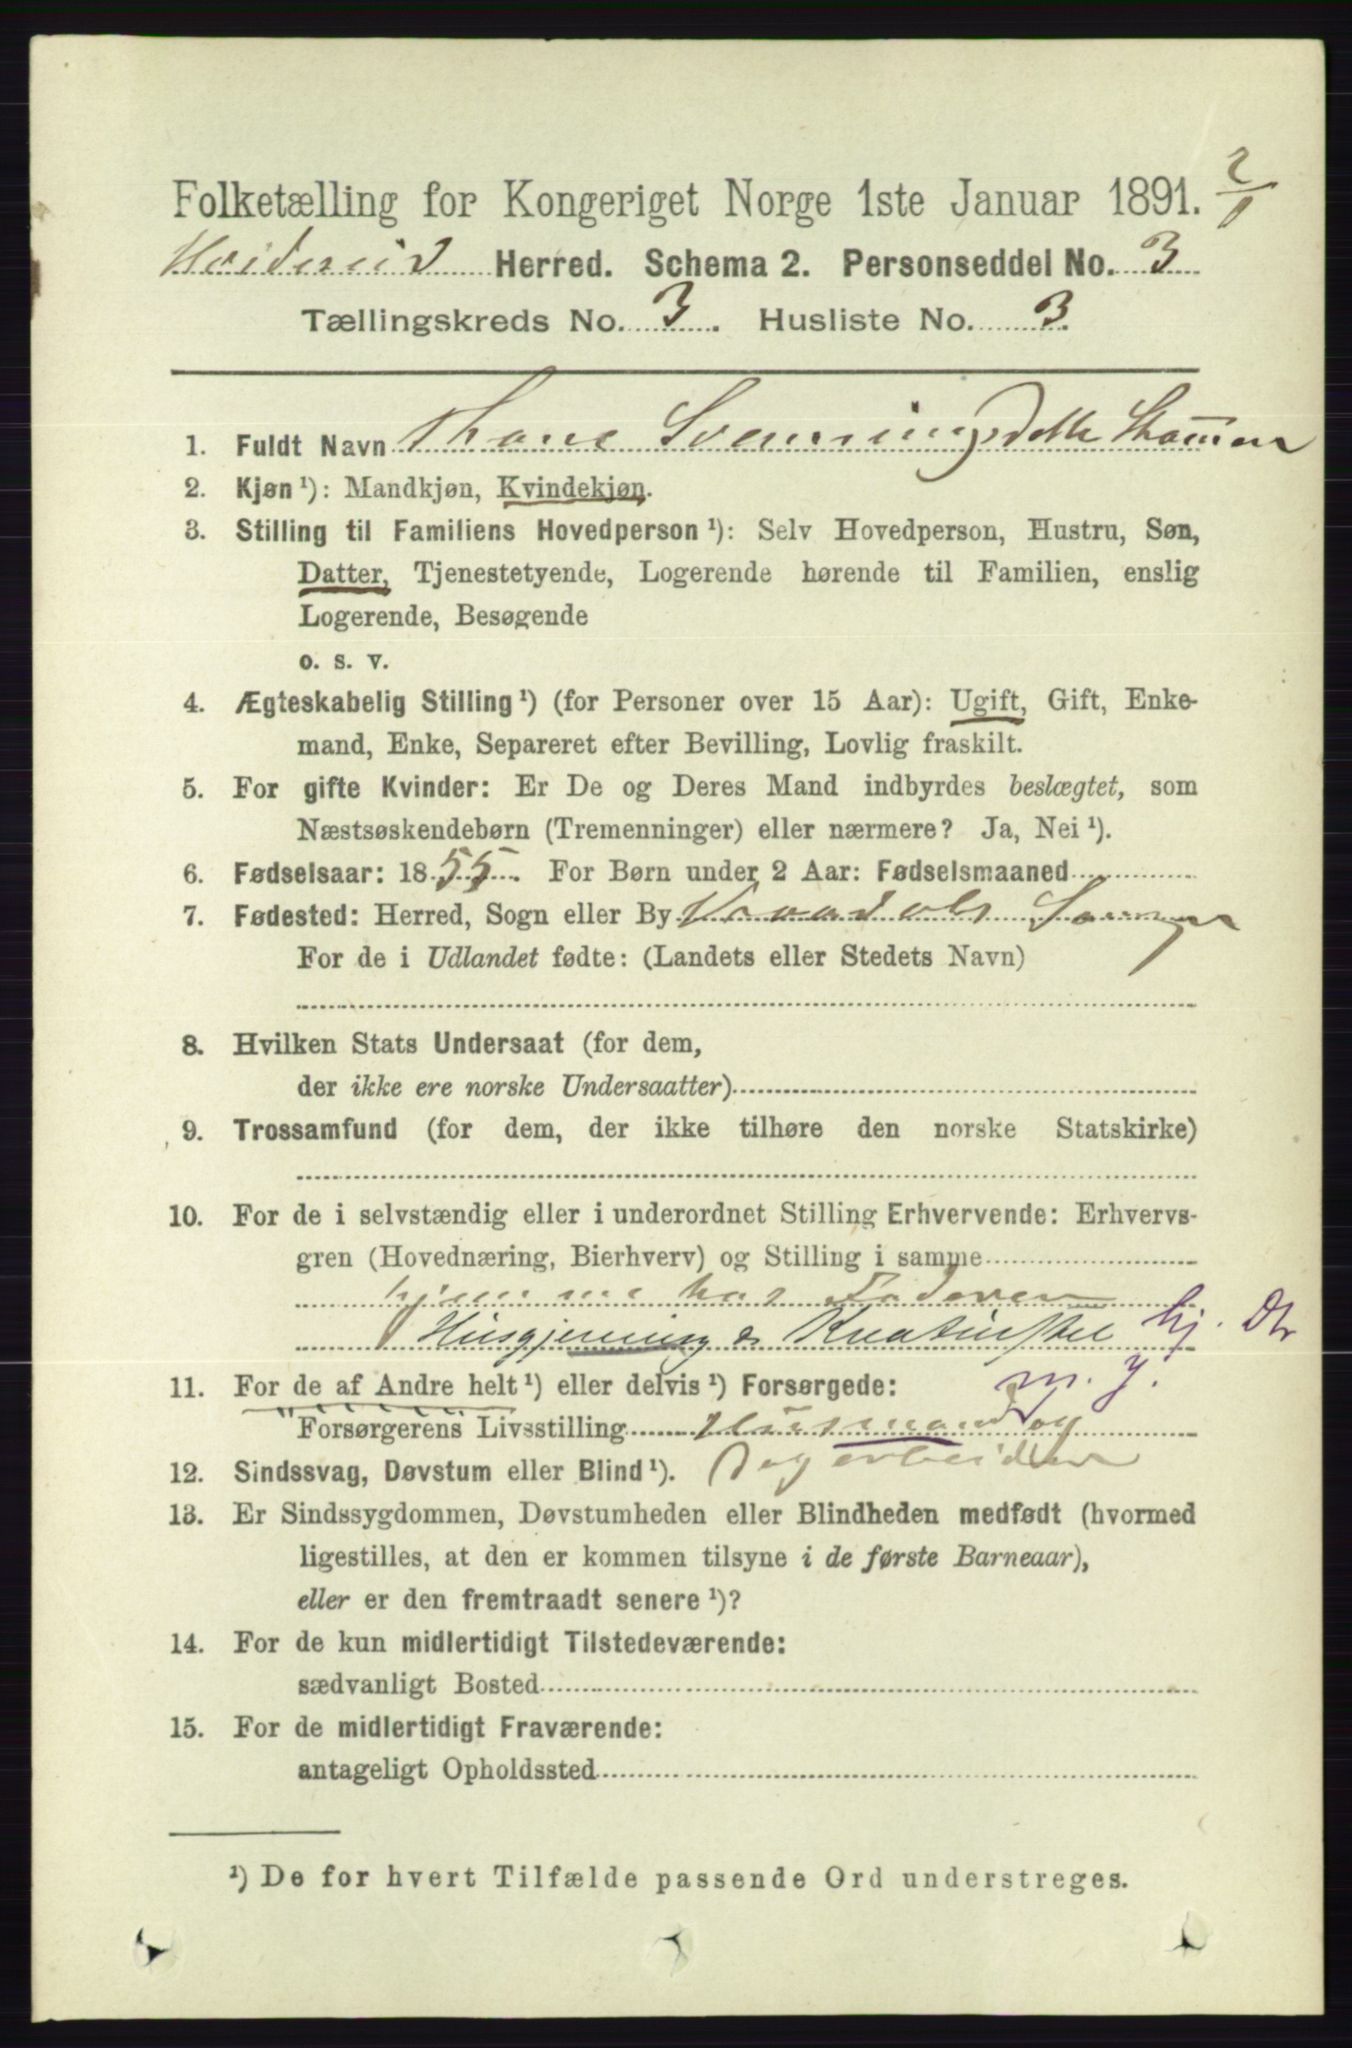 Folketælling for Kongeriget Norge 1ste Januar 1891. 2/1
Hvideseid Herred. Schema 2. Personseddel No. 3
Tællingskreds No. 3. Husliste No. 3.
1. Fuldt Navn Thone Svenningsdatter
2. Kjøn ¹): Mandkjøn, Kvindekjøn.
3. Stilling til Familiens Hovedperson ¹): Selv Hovedperson, Hustru, Søn,
Datter, Tjenestetyende, Logerende hørende til Familien, enslig
Logerende, Besøgende
o. s. v.
4. Ægteskabelig Stilling ¹) (for Personer over 15 Aar): Ugift, Gift, Enke-
mand, Enke, Separeret efter Bevilling, Lovlig fraskilt.
5. For gifte Kvinder: Er De og Deres Mand indbyrdes beslægtet, som
Næstsøskendebørn (Tremenninger) eller nærmere? Ja, Nei ¹).
6. Fødselsaar: 1855. For Børn under 2 Aar: Fødselsmaaned
7. Fødested: Herred, Sogn eller By Vraadals Sogn
For de i Udlandet fødte: (Landets eller Stedets Navn)
8. Hvilken Stats Undersaat (for dem,
der ikke ere norske Undersaatter)
9. Trossamfund (for dem, der ikke tilhøre den norske Statskirke)
10. For de i selvstændig eller i underordnet Stilling Erhvervende: Erhvervs-
gren (Hovednæring, Bierhverv) og Stilling i samme
hjemme hos Faderen
Husgjerning & Kreaturstel hj. Dtr
11. For de af Andre helt ¹) eller delvis ¹) Forsørgede: m. J.
Forsørgerens Livsstilling Husmand og
12. Sindssvag, Døvstum eller Blind ¹). Dagarbeider
13. Er Sindssygdommen, Døvstumheden eller Blindheden medfødt (hvormed
ligestilles, at den er kommen tilsyne i de første Barneaar),
eller er den fremtraadt senere ¹)?
14. For de kun midlertidigt Tilstedeværende:
sædvanligt Bosted
15. For de midlertidigt Fraværende:
antageligt Opholdssted
¹) De for hvert Tilfælde passende Ord understreges.